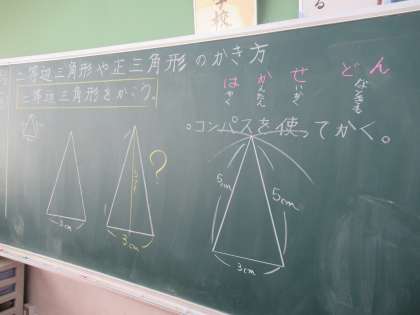 学校
る
二等辺三角形や正三角形のかき方
二等辺三角形をかこう。
はかせどん
はやく
かんたん
せいかく
なっとく
。コンパスを使ってかく。
3cm
3cm
?
5cm
5cm
3cm